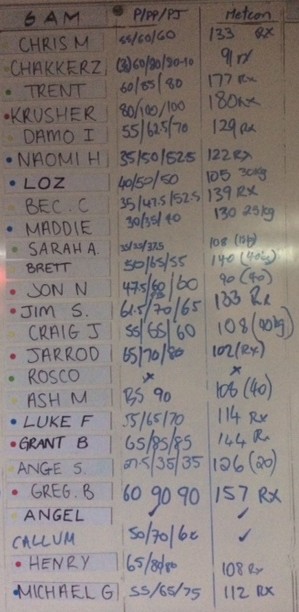 6 AM P/PP/PJ Metcon
CHRIS M 55/60/60 133 Rx
CHAKKERZ 91 rx
TRENT 60/65/80 177 Rx
KRUSHER 80/100/100 180 Rx
DAMO I 55/62.5/70 129 Rx
NAOMI H 35/50/52.5 122 Rx
LOZ 40/50/50 105 30kg
BEC. C 35/47.5/52.5 139 Rx
MADDIE 30/35/40 130 25kg
SARAH A. 108
BRETT 50/65/55 140
JON N 47.5/60/60 90 (40)
JIM S. 61.5/70/65 133 Rx
CRAIG J 55/65/60 108
JARROD 65/70/80 102 (Rx)
ROSCO x x
ASH M BS 90 106 (40)
LUKE F 55/65/70 114 Rx
GRANT B 65/85/85 144 Rx
ANGE S. 27.5/35/35 126 (20)
GREG. B 60 90 90 157 Rx
ANGEL ✓ ✓
CALLUM 50/70/60 ✓
HENRY 65/80/80 108 Rx
MICHAEL G 55/65/75 112 Rx